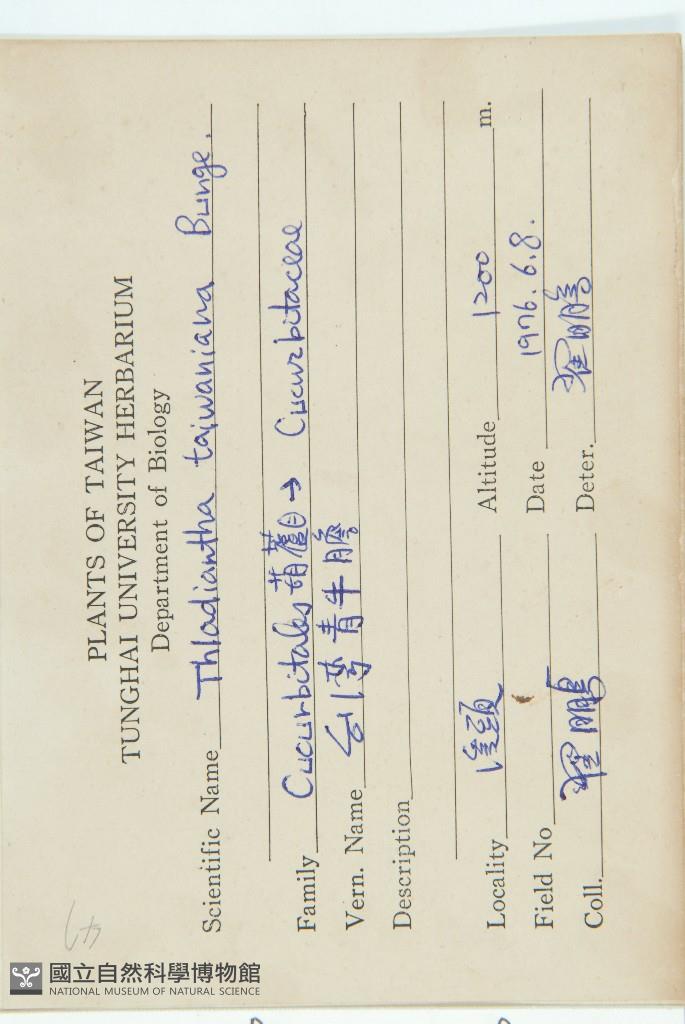 PLANTS OF TAIWAN
TUNGHAI UNIVERSITY HERBARIUM
Department of Biology
Scientific Name Thladiantha taiwaniana Bunge.
Family Cucurbitales 葫蘆目 → Cucurbitaceae
Vern. Name 台灣青牛膽
Description
Locality 溪頭 Altitude 1200 m.
Field No Date 1976. 6. 8.
Coll. 翟鵬 Deter. 翟鵬
國立自然科學博物館
NATIONAL MUSEUM OF NATURAL SCIENCE